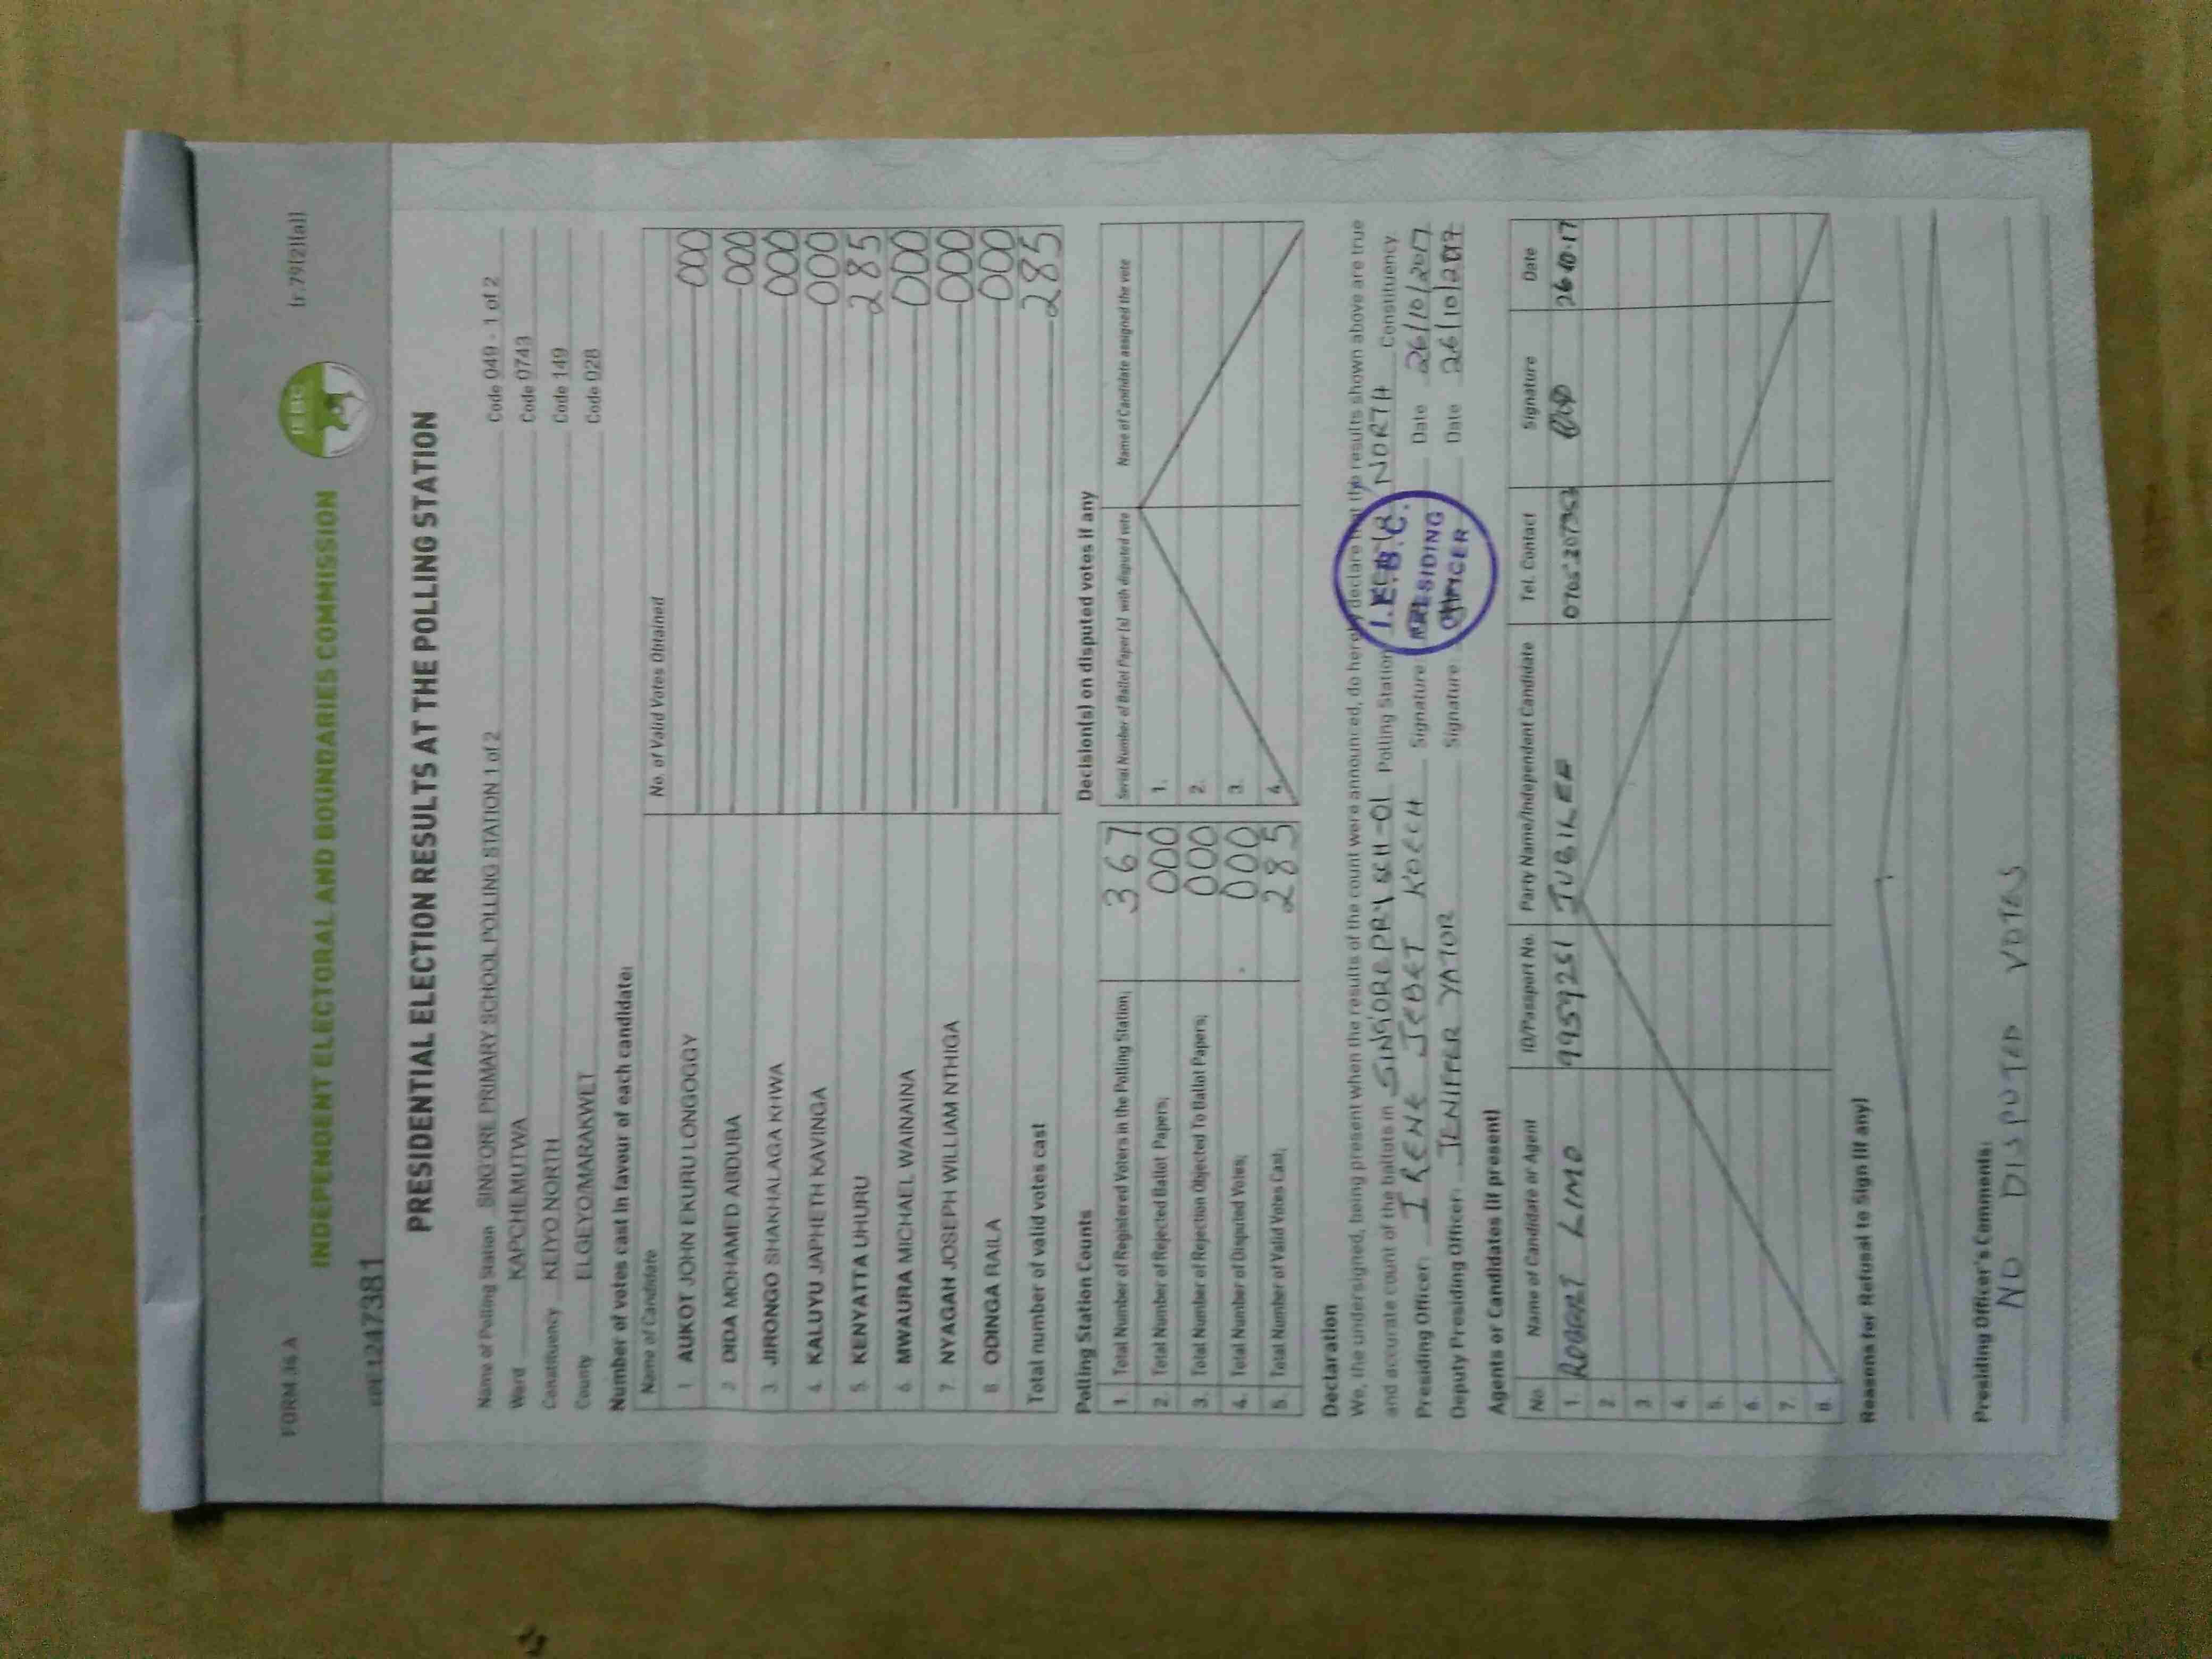 FORM 34 A (r.79(2)(a))
IEBC
INDEPENDENT ELECTORAL AND BOUNDARIES COMMISSION
1247381
PRESIDENTIAL ELECTION RESULTS AT THE POLLING STATION
Name of Polling Station SING'ORE PRIMARY SCHOOL POLLING STATION 1 of 2 Code 049 - 1 of 2
Ward KAPCHEMUTWA Code 0743
Constituency KEIYO NORTH Code 149
County ELGEYO/MARAKWET Code 028
Number of votes cast in favour of each candidate:
Name of Candidate No. of Valid Votes Obtained
1 AUKOT JOHN EKURU LONGOGGY 000
2 DIDA MOHAMED ABDUBA 000
3. JIRONGO SHAKHALAGA KHWA 000
4. KALUYU JAPHETH KAVINGA 000
5. KENYATTA UHURU 285
6 MWAURA MICHAEL WAINAINA 000
7. NYAGAH JOSEPH WILLIAM NTHIGA 000
8 ODINGA RAILA 000
Total number of valid votes cast 285
Polling Station Counts
1. Total Number of Registered Voters in the Polling Station; 367
2. Total Number of Rejected Ballot Papers; 000
3. Total Number of Rejection Objected To Ballot Papers; 000
4. Total Number of Disputed Votes; 000
5. Total Number of Valid Votes Cast; 285
Decision(s) on disputed votes if any
Serial Number of Ballot Paper (s) with disputed vote Name of Candidate assigned the vote
1.
2.
3.
4.
Declaration
We, the undersigned, being present when the results of the count were announced, do hereby declare that the results shown above are true
and accurate count of the ballots in SINGORE PRY SCH-01 Polling Station NORTH Constituency
Presiding Officer: IRENE JEBET KOECH Signature: Date 26/10/2017
Deputy Presiding Officer: JENIFFER YATOR Signature: Date 26/10/2017
I.E.B.C.
PRESIDING
OFFICER
Agents or Candidates (if present)
No. Name of Candidate or Agent ID/Passport No. Party Name/Independent Candidate Tel. Contact Signature Date
1. ROBERT LIMO 9959251 JUBILEE 26-10-17
2.
3.
4.
5.
6.
7.
8.
Reasons for Refusal to Sign (if any)
Presiding Officer's Comments:
NO DISPUTED VOTES